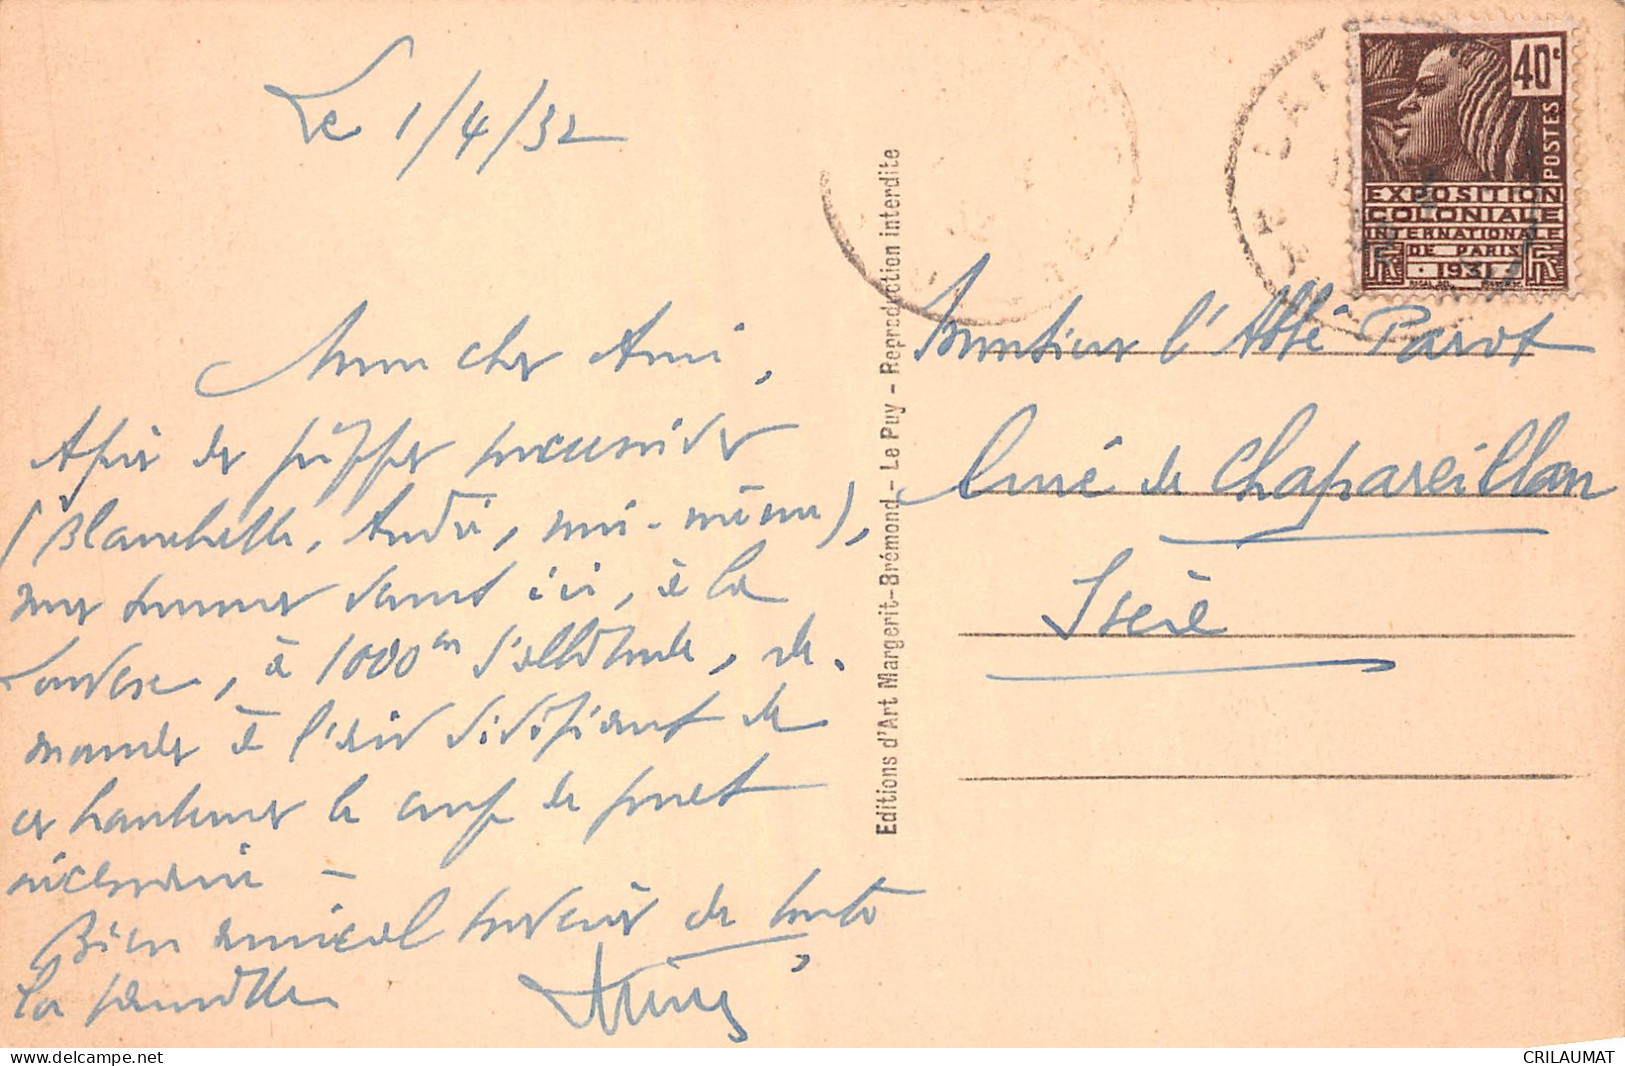 Le 1/4/32
Mon cher Ami,
Après de grippes successives
(Blanchette, André, moi-même),
nous sommes venus ici, à la
Louvesc, à 1000 m d'altitude, de-
mander à l'air vivifiant de
ces hauteurs le coup de fouet
nécessaire -
Bien amical souvenir de toute
la famille
40c
POSTES
EXPOSITION
COLONIALE
INTERNATIONALE
DE PARIS
1931
RF
Editions d'Art Margerit-Brémond - Le Puy - Reproduction interdite
Monsieur l'Abbé Parot
Curé de Chapareillan
Isère
www.delcampe.net
CRILAUMAT